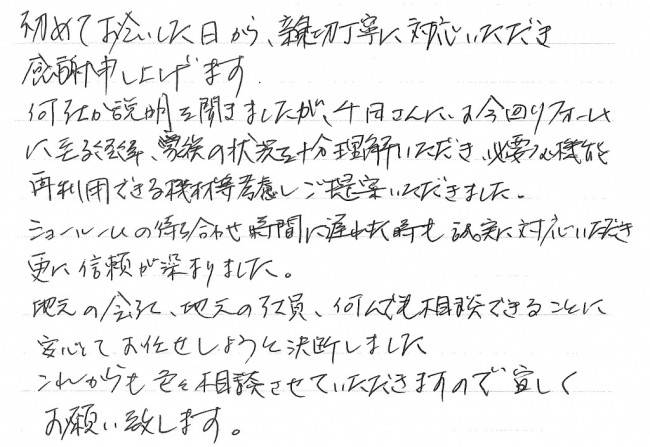 初めてお会いした日から、親切丁寧に対応いただき
感謝申し上げます.
何社か説明を聞きましたが、千田さんには今回リフォーム
に至る経緯、家族の状況を十分理解いただき、必要な機能
再利用できる機材等考慮しご提案いただきました。
ショールームの待ち合わせ時間に遅れた時も誠実に対応いただき
更に信頼が深まりました。
地元の会社、地元の社員、何んでも相談できることに
安心して お任せしようと決断しました
これからも色々相談させていただきますので宜しく
お願い致します。